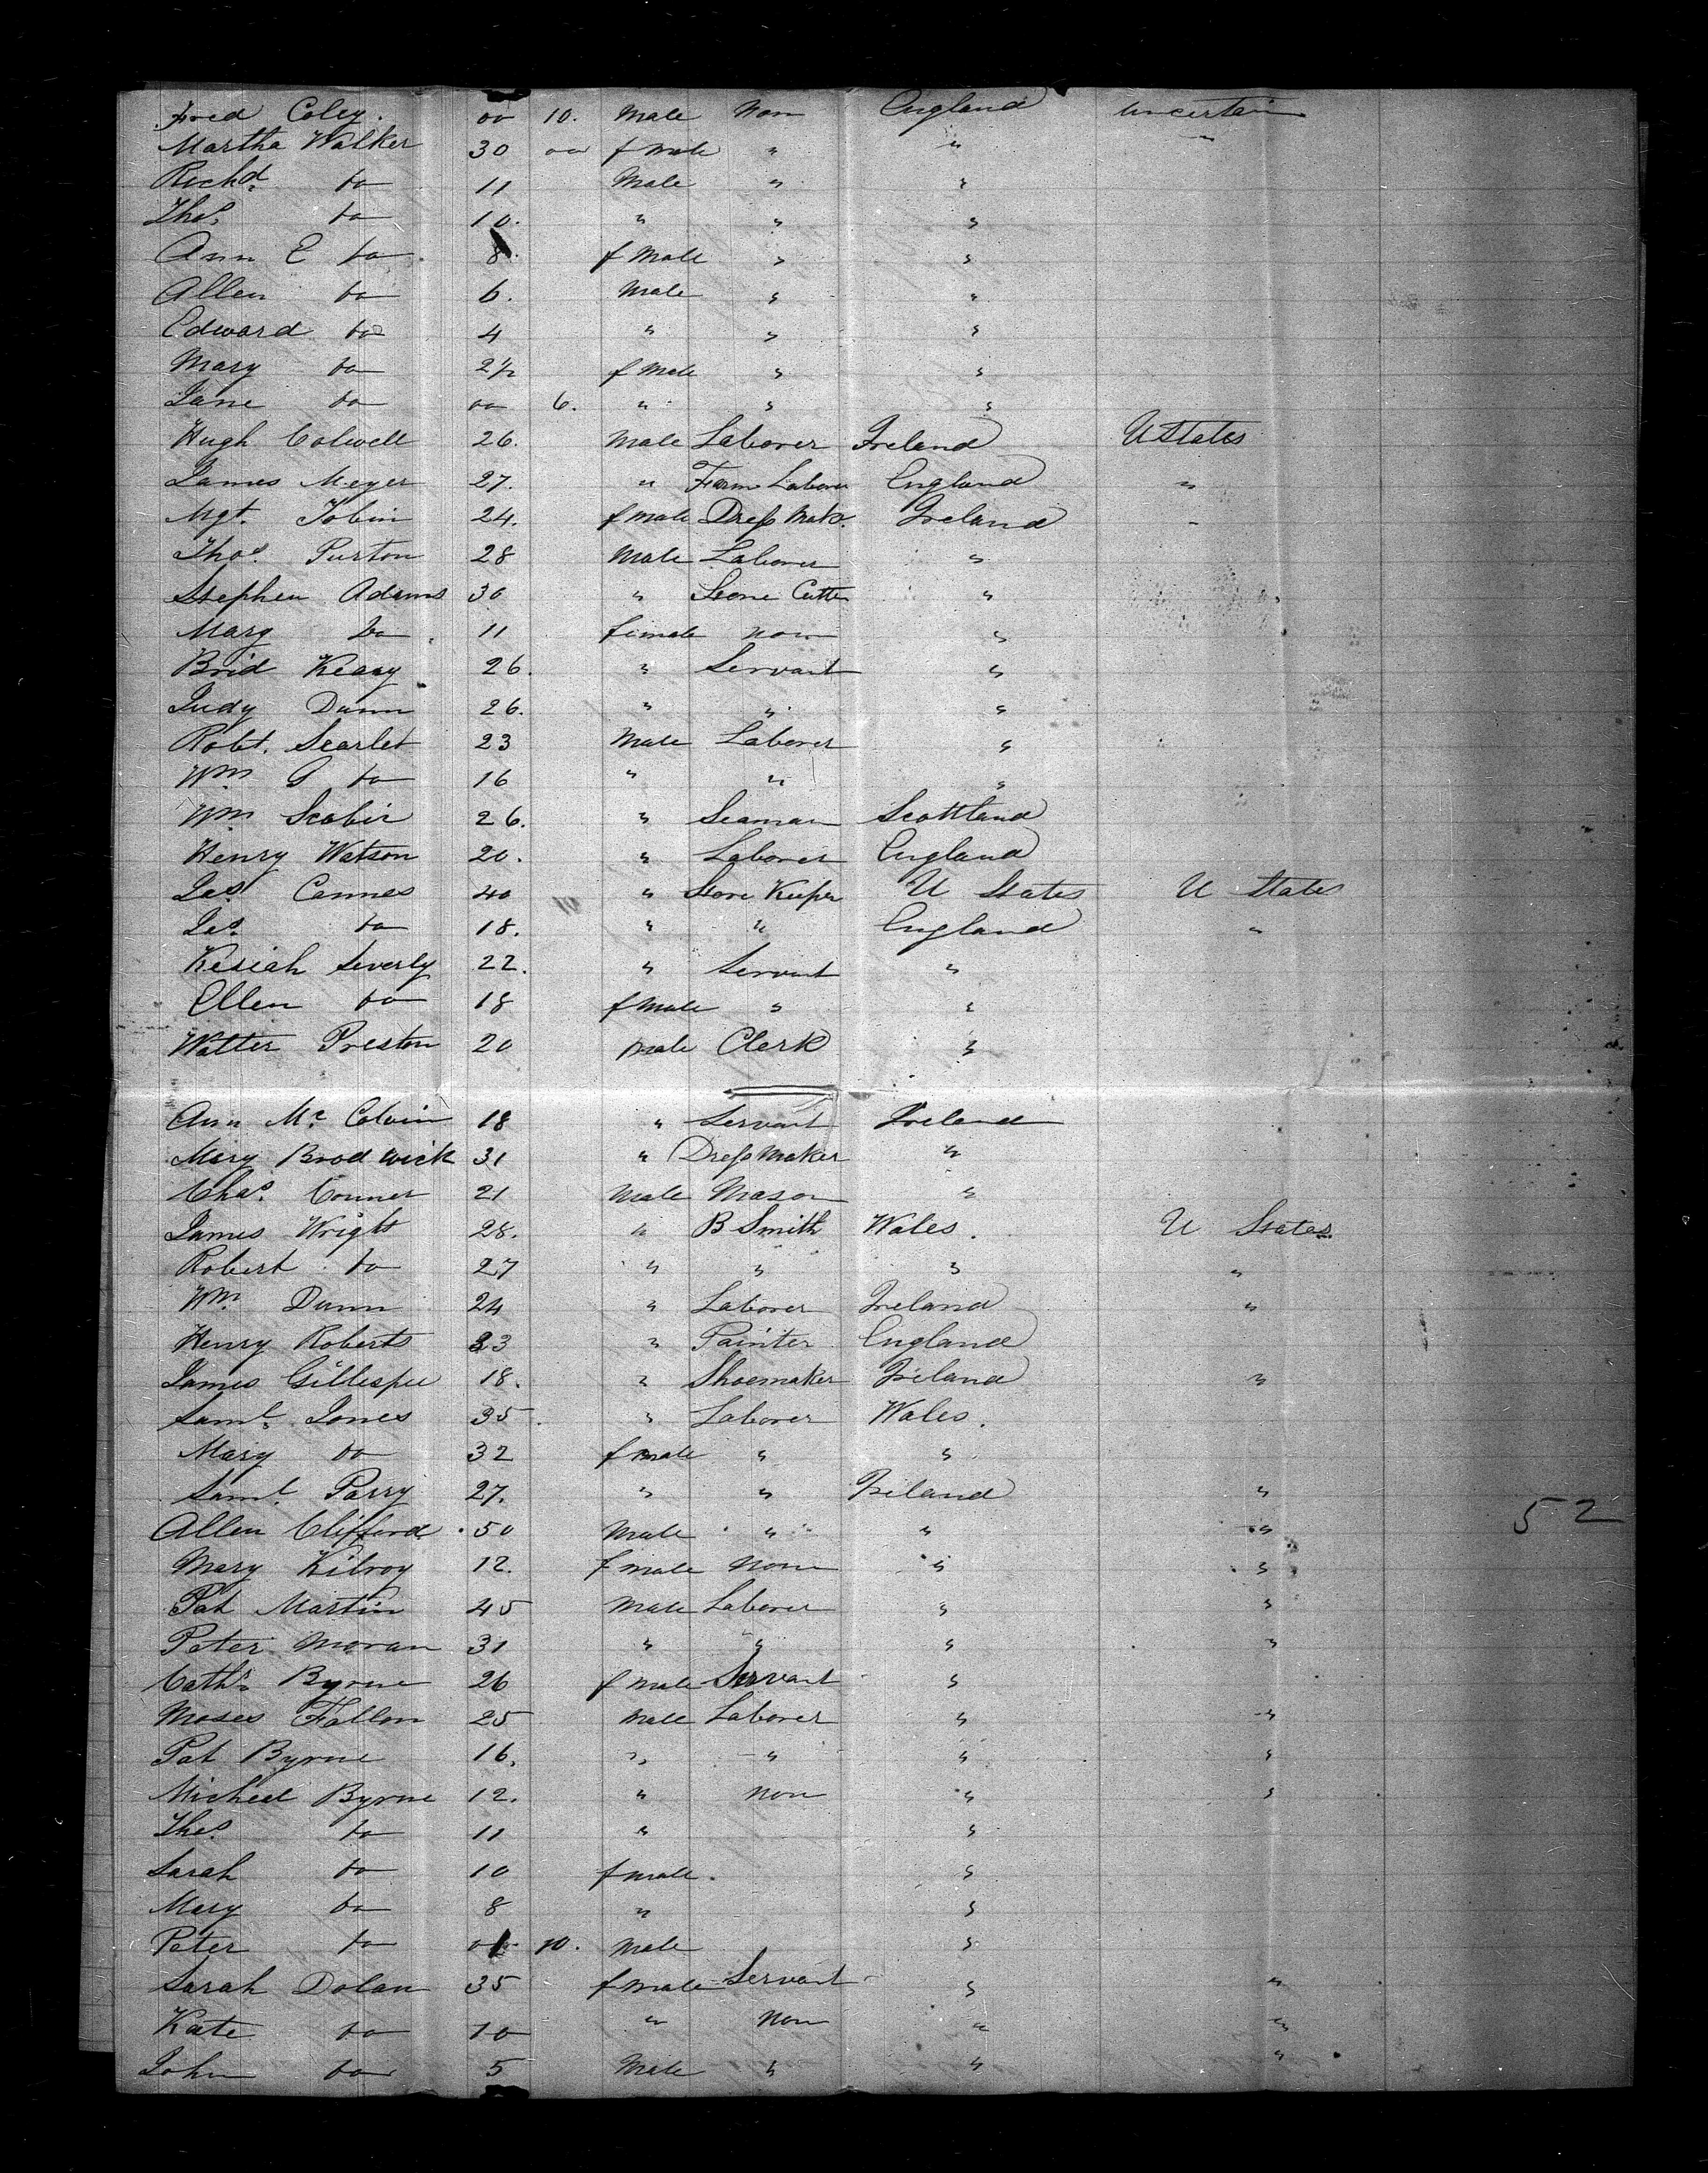 Fred Coley. 00 10. Male Non England Uncertain
Martha Walker 30 00 f male " " "
Richd. do 11 Male " "
Thos. do 10. " " "
Ann E do 8. f Male " "
Allen do 6. Male " "
Edward do 4 " " "
Mary do 2½ f Male " "
Jane do 00 6. " " "
Hugh Colwell 26. Male Laborer Ireland U States
James Meyer 27. " Farm Laborer England "
Mgt. Tobin 24. f male Dress Mak. Ireland "
Thos. Purton 28 Male Laborer "
Stephen Adams 30 " Stone Cutter " "
Mary do 11 female non "
Brid Keary 26. " Servant "
Judy Dunn 26. " " "
Robt. Scarlet 23 Male Laborer "
Wm. G do 16 " " "
Wm. Scobir 26. " Seaman Scottland
Henry Watson 20. " Laborer England
Jas. Connes 40 " Store Keeper U States U States
Jas. do 18. " " England "
Kesiah Severly 22. " Servant "
Ellen do 18 f male " "
Walter Preston 20 Male Clerk "
Ann Mc Colvin 18 " Servant Ireland
Mary Brodwick 31 " Dress Maker "
Chas. Conner 21 Male Mason "
James Wright 28. " B Smith Wales. U States.
Robert do 27 " " " "
Wm. Dunn 24 " Laborer Ireland "
Henry Roberts 23 " Painter England
James Gillespie 18. " Shoemaker Ireland "
Saml. Jones 35. " Laborer Wales.
Mary do 32 f male " "
Saml. Parry 27. " " Ireland "
Allen Clifford 50 Male " " " 52
Mary Kilroy 12. f male Non " "
Pat Martin 45 Male Laborer " "
Peter Moran 31 " " " "
Cath. Byrne 26 f male Servant "
Moses Fallon 25 Male Laborer " "
Pat Byrne 16. " " " "
Micheal Byrne 12. " Non " "
Thos. do 11 " "
Sarah do 10 f male. "
Mary do 8 " "
Peter do 10. Male "
Sarah Dolan 35 f male Servant " "
Kate do 10 " Non " "
John do 5 Male " " "